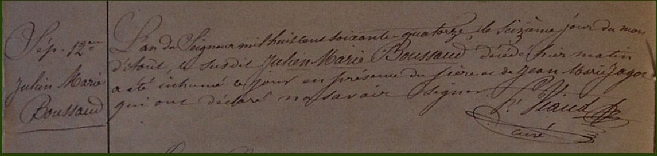 Sép. 12me
Julien Marie
Boussaud
L'an du Seigneur mil huit cent soixante-quatorze, le seizième jour du mois
d'Août, le susdit Julien Marie Boussaud, décédé hier matin
a été inhumé ce jour en présence du frère et de Jean Marie Jagot
qui ont déclaré ne savoir signer.
Viaud
curé